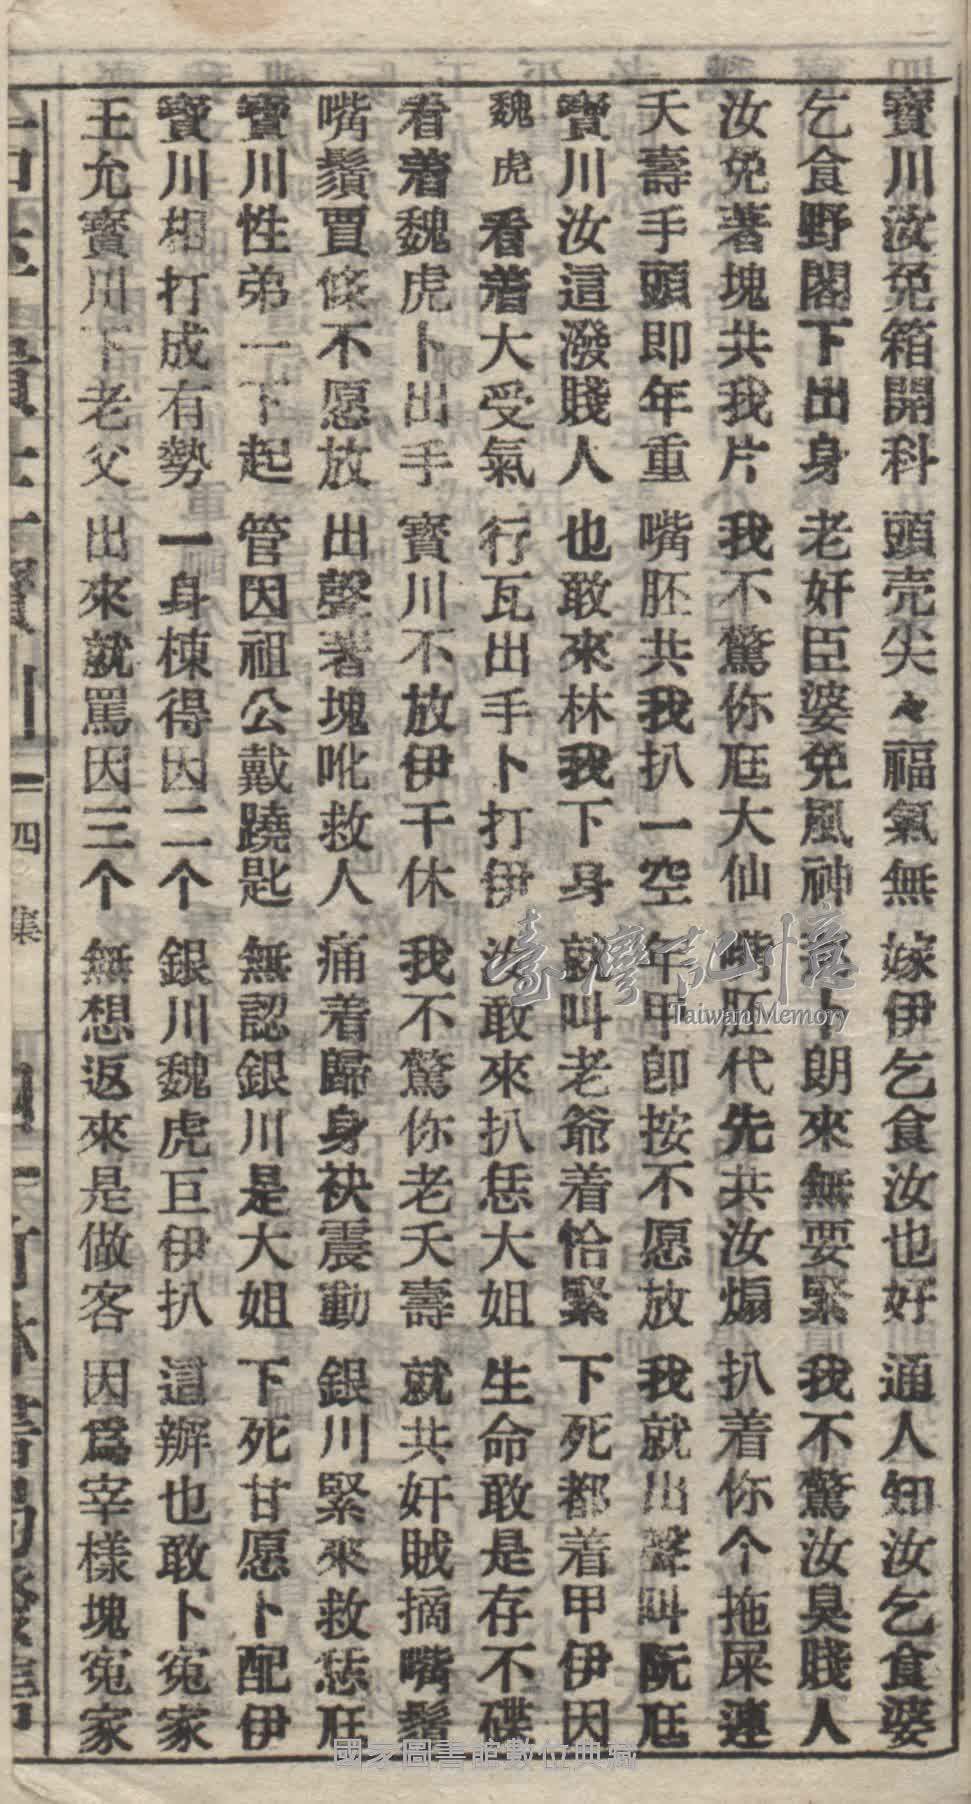 寶川汝免箱開科 頭壳尖々福氣無 嫁伊乞食汝也好 通人知汝乞食婆
乞食野閣下出身 老奸臣婆免風神 卜朗來無要緊 我不驚汝臭賤人
汝免著塊共我片 我不驚你尫大仙 嘴胚代先共汝煽 扒着你个拖屎連
夭壽手頭即年重 嘴胚共我扒一空 年甲卽按不愿放 我就出聲叫阮尫
寶川汝這潑賤人 也敢來林我下身 就叫老爺着恰緊 下死都着甲伊因
魏虎看着大受氣 行瓦出手卜打伊 汝敢來扒恁大姐 生命敢是存不碟
看着魏虎卜出手 寶川不放伊干休 我不驚你老夭壽 就共奸賊摘嘴鬚
嘴鬚買倐不愿放 出聲著塊吪救人 痛着歸身袂震動 銀川緊來救恁尫
寶川性弟一下起 管因祖公戴蹺匙 無認銀川是大姐 下死甘愿卜配伊
寶川相打成有勢 一身棟得因二个 銀川魏虎巨伊扒 這辦也敢卜寃家
王允寶川下老父 出來就罵因三个 無想返來是做客 因爲宰樣塊寃家
四集
臺灣記憶
Taiwan Memory
國家圖書館數位典藏